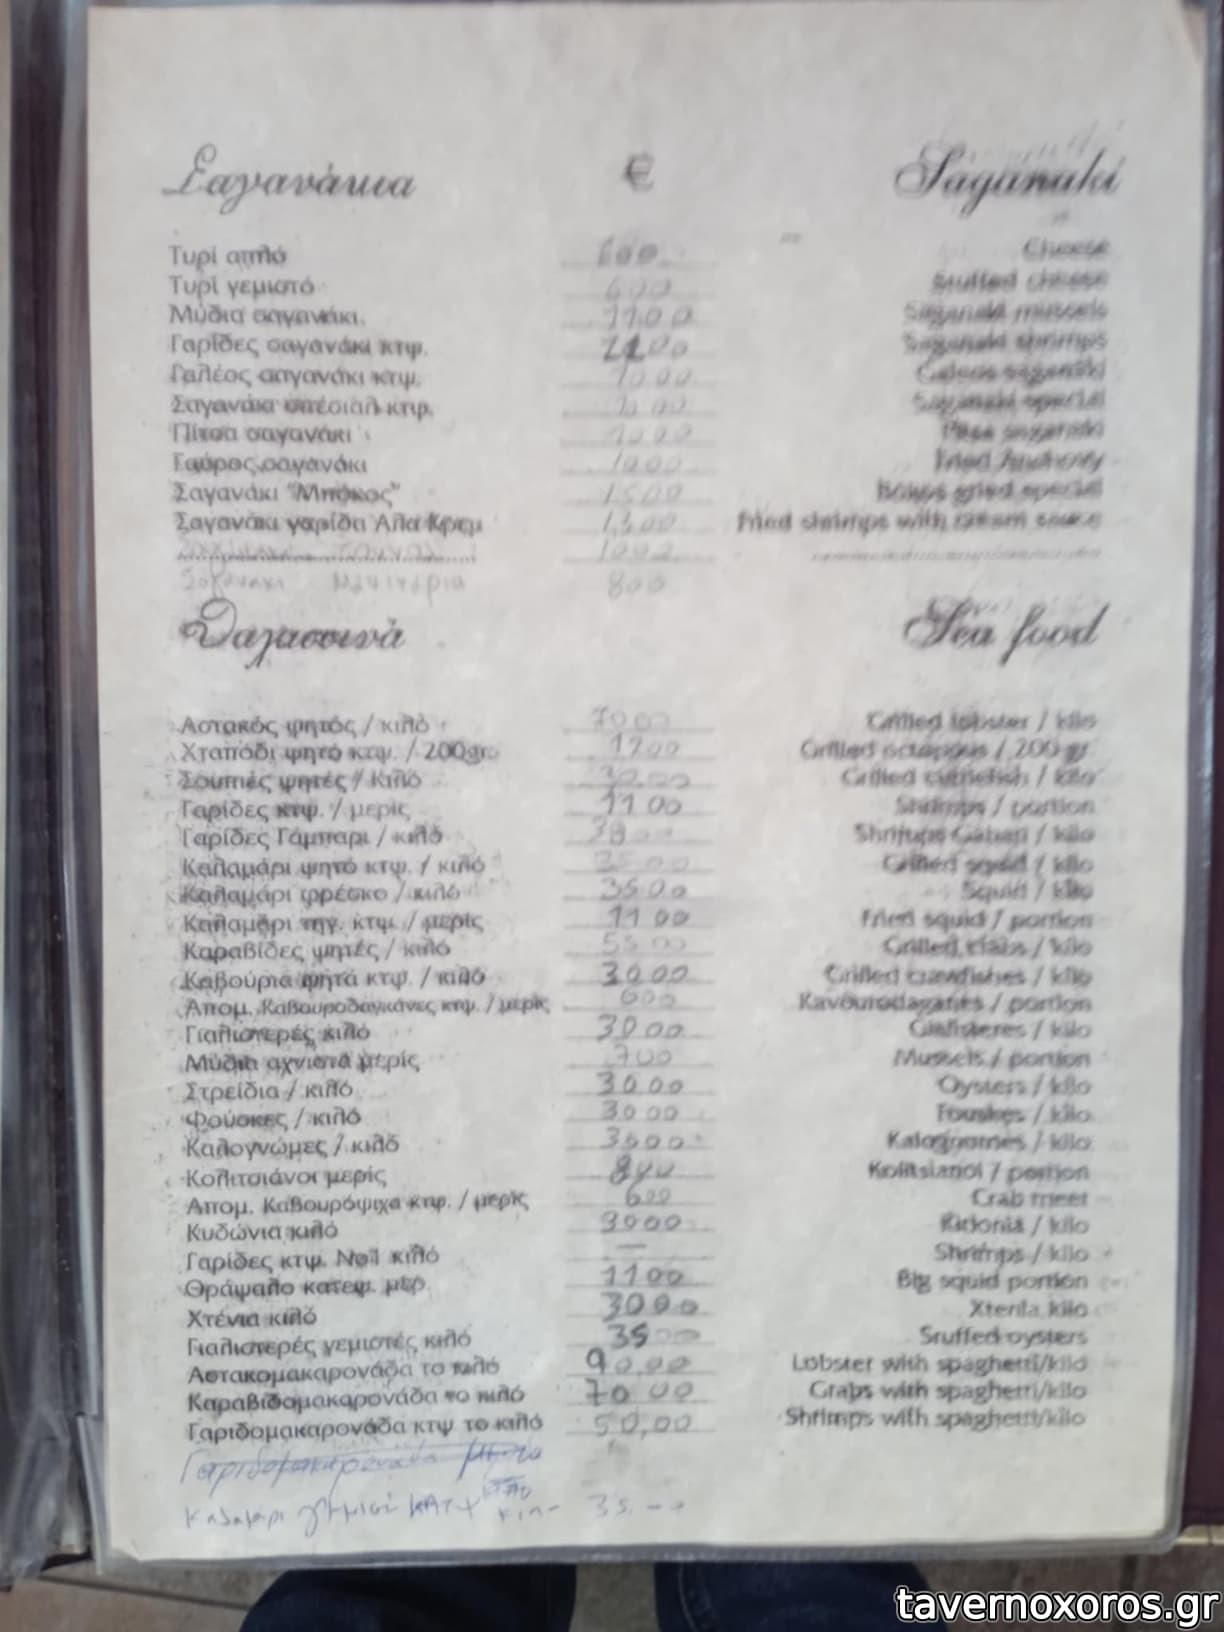 Σαγανάκια € Saganaki
Τυρί απλό 600 Cheese
Τυρί γεμιστό 600 Stuffed cheese
Μύδια σαγανάκι. 1100 Saganaki mussels
Γαρίδες σαγανάκι κτψ. 00 Saganaki shrimps
Γαλέος σαγανάκι κτψ. 1000 Galeos saganaki
Σαγανάκι σπέσιαλ κτψ. 1000 Saganaki special
Πίτσα σαγανάκι 1000 Pitsa saganaki
Γαύρος σαγανάκι 1000 Fried Anchovy
Σαγανάκι "Μπόκος" 1500 Bokos special
Σαγανάκι γαρίδα Αλά Κρεμ 1300 Fried shrimps with cream sauce
1000
Σαγανάκι 800
Θαλασσινά Sea food
Αστακός ψητός / κιλό 7000 Grilled lobster / kilo
Χταπόδι ψητό κτψ. / 200gr 1200 Grilled octapous / 200 gr
Σουπιές ψητές / Κιλό 3000 Grilled cuttlefish / kilo
Γαρίδες κτψ. / μερίς 1100 Shrimps / portion
Γαρίδες Γάμπαρι / κιλό 3800 Shrimps Gabari / kilo
Καλαμάρι ψητό κτψ. / κιλό 3500 Grilled squid / kilo
Καλαμάρι φρέσκο / κιλό 3500 Squid / kilo
Καλαμάρι τηγ. κτψ. / μερίς 1100 Fried squid / portion
Καραβίδες ψητές / κιλό 5500 Grilled / kilo
Καβούρια ψητά κτψ. / κιλό 3000 Grilled crawfishes / kilo
Απομ. Καβουροδαγκάνες κτψ. / μερίς 600 Kavourodaganes / portion
Γιαλιστερές κιλό 3000 Gialisteres / kilo
Μύδια αχνιστά μερίς 700 Mussels / portion
Στρείδια / κιλό 3000 Oysters / kilo
Φούσκες / κιλό 3000 Fouskes / kilo
Καλογνώμες / κιλό 3500 Kalognomes / kilo
Κολιτσιάνοι μερίς 800 Kolitsianoi / portion
Απομ. Καβουρόψιχα κτψ. / μερίς 600 Crab meet
Κυδώνια κιλό 3000 Kidonia / kilo
Γαρίδες κτψ. Νο1 κιλό — Shrimps / kilo
Θράψαλο κατεψ. μερ. 1100 Big squid portion
Χτένια κιλό 3000 Xtenia kilo
Γιαλιστερές γεμιστές κιλό 3500 Stuffed oysters
Αστακομακαρονάδα το κιλό 90,00 Lobster with spaghetti/kilo
Καραβιδομακαρονάδα το κιλό 70 00 Crabs with spaghetti/kilo
Γαριδομακαρονάδα κτψ το κιλό 50,00 Shrimps with spaghetti/kilo
Γαριδομακαρονάδα
Καλαμάρι γεμιστό ΚΑΤΨ 35.--
tavernoxoros.gr